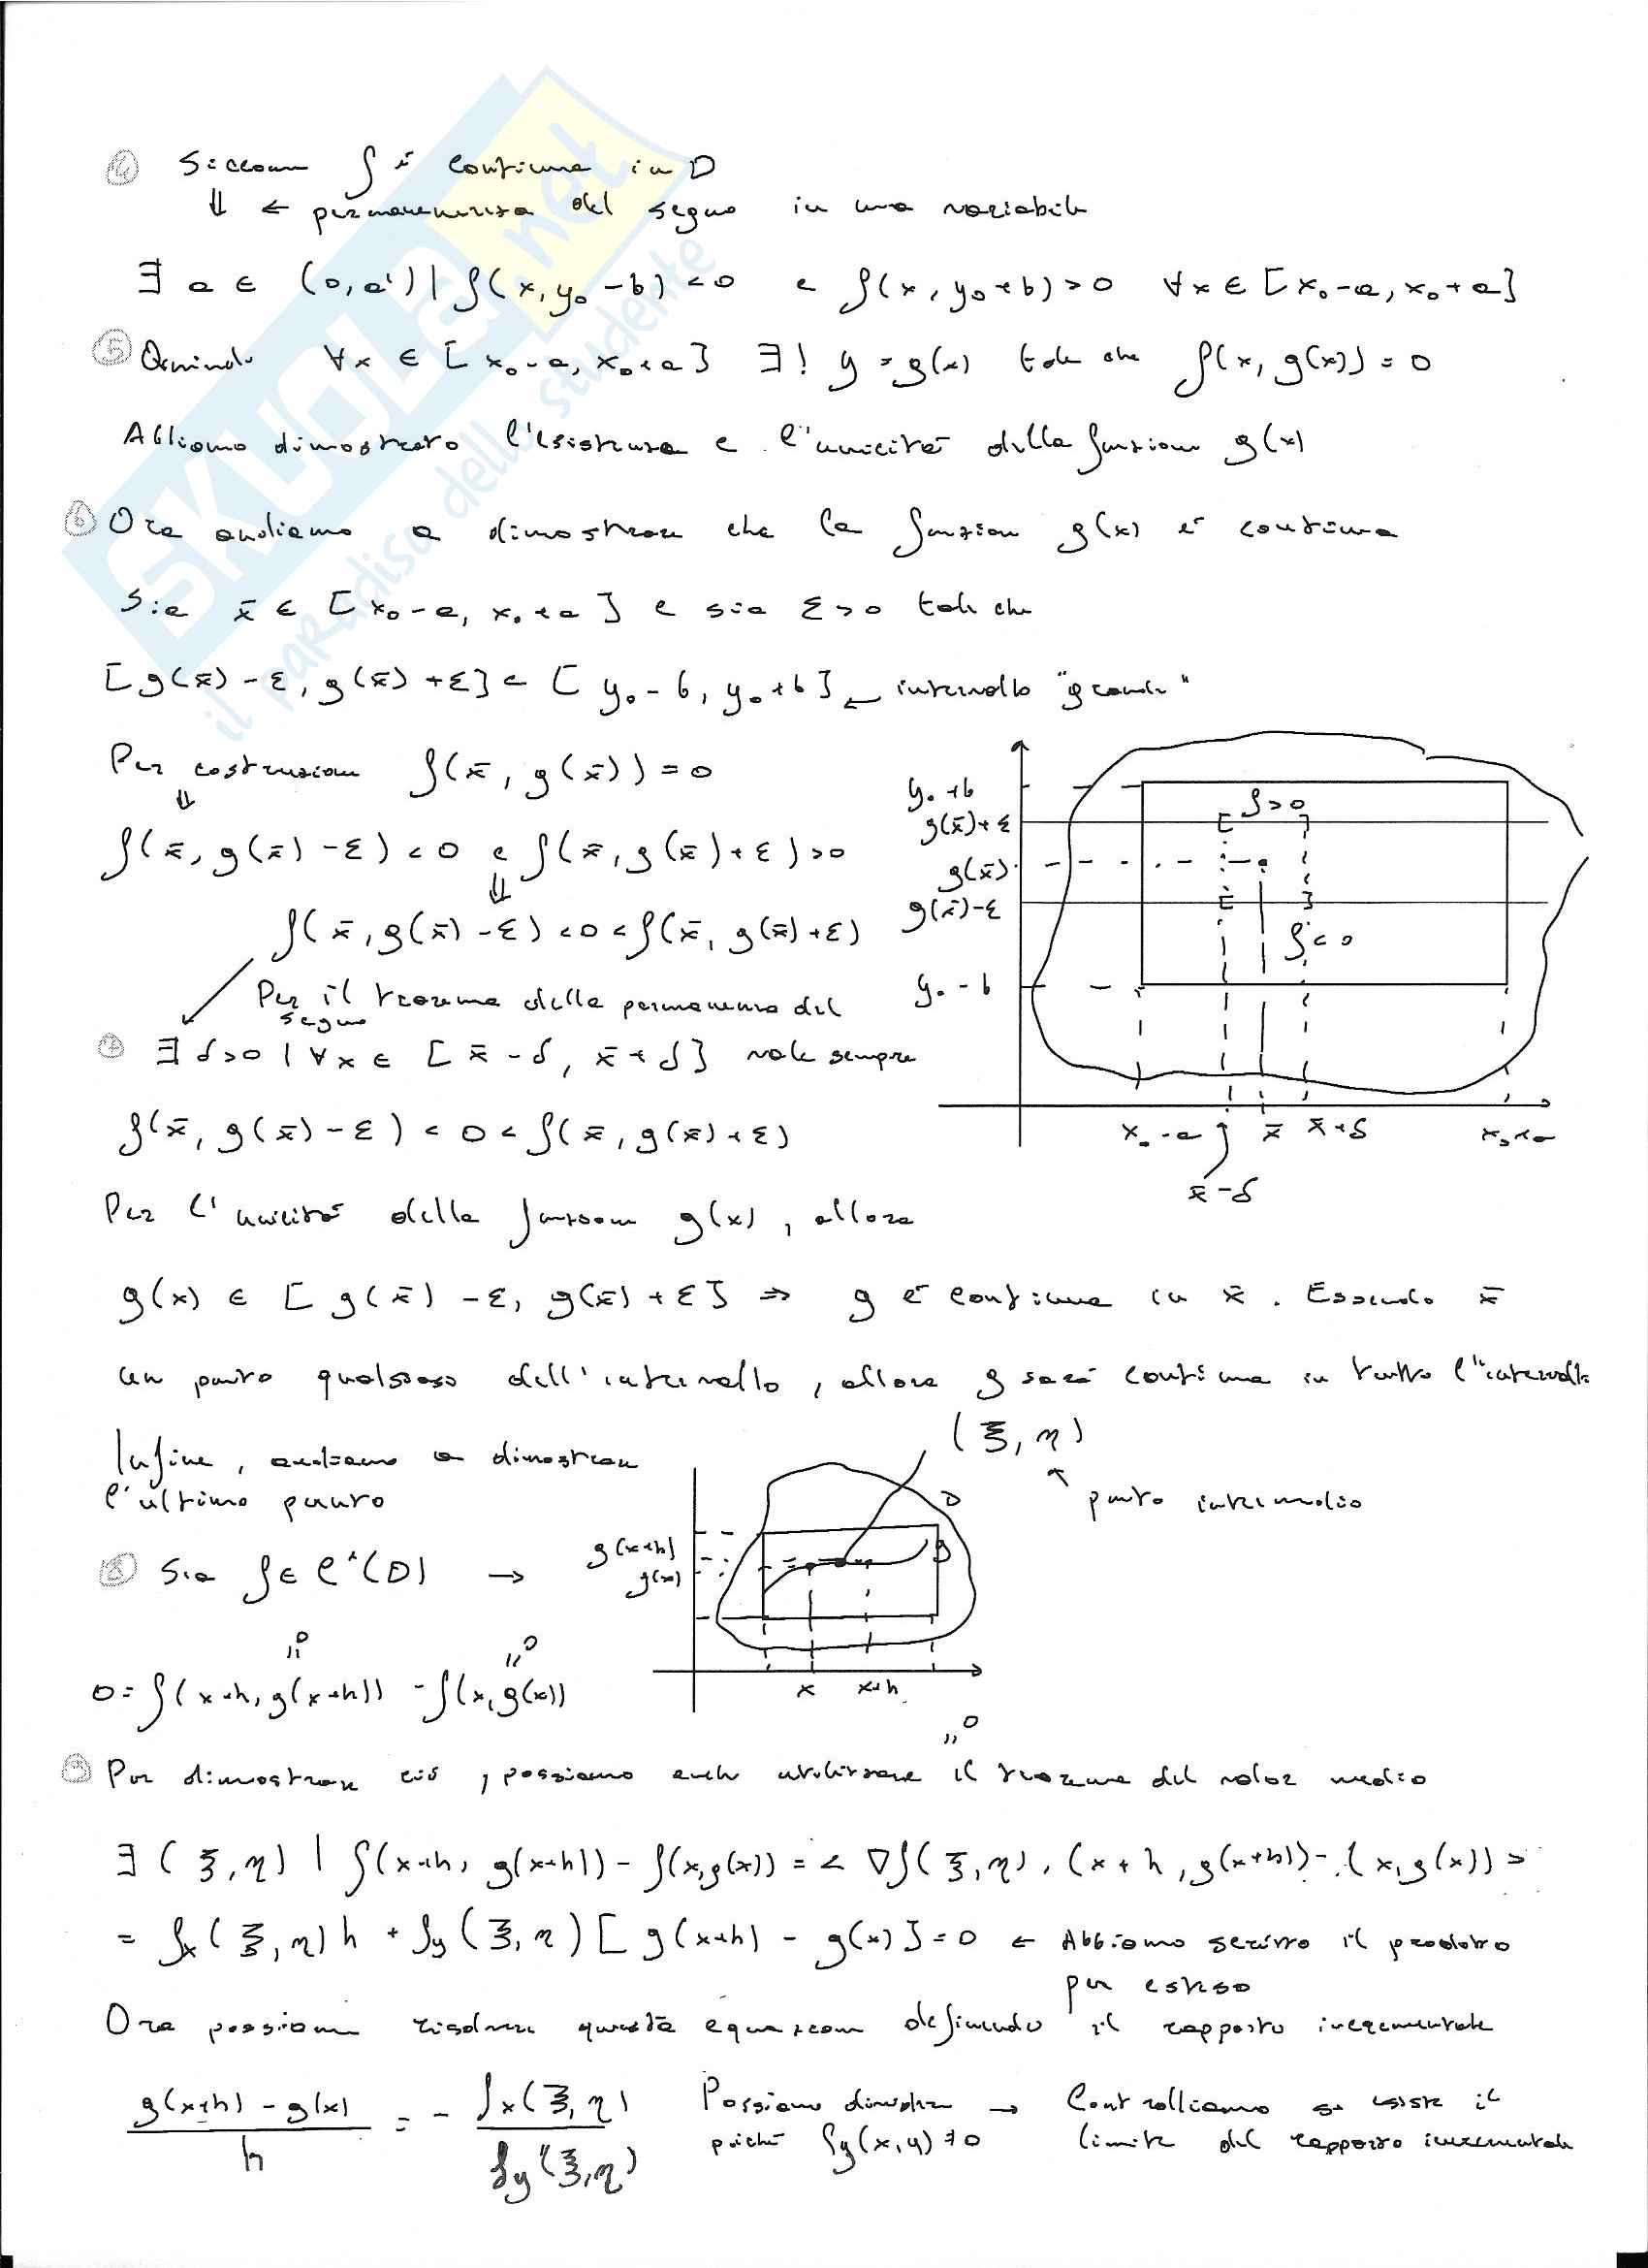 ④ Siccome f è continua in D
⇓ ← permanenza del segno in una variabile
∃ a ∈ (0, a') | f(x, y₀-b) < 0 e f(x, y₀+b) > 0 ∀x ∈ [x₀-a, x₀+a]
⑤ Quindi ∀x ∈ [x₀-a, x₀+a] ∃! y = g(x) tale che f(x, g(x)) = 0
Abbiamo dimostrato l'esistenza e l'unicità della funzione g(x)
⑥ Ora andiamo a dimostrare che la funzione g(x) è continua
Sia x̄ ∈ [x₀-a, x₀+a] e sia ε>0 tale che
[g(x̄)-ε, g(x̄)+ε] ⊂ [y₀-b, y₀+b] ← intervallo "grande"
Per costruzione f(x̄, g(x̄)) = 0
⇓
f(x̄, g(x̄)-ε) < 0 e f(x̄, g(x̄)+ε) > 0
⇓
f(x̄, g(x̄)-ε) < 0 < f(x̄, g(x̄)+ε)
Per il teorema della permanenza del
segno
⑦ ∃ δ>0 | ∀x ∈ [x̄-δ, x̄+δ] vale sempre
f(x̄, g(x̄)-ε) < 0 < f(x̄, g(x̄)+ε)
y₀+b
g(x̄)+ε
g(x̄)
g(x̄)-ε
y₀-b
f>0
f<0
x₀-a x̄ x̄+δ x₀+a
x̄-δ
Per l'unicità della funzione g(x), allora
g(x) ∈ [g(x̄)-ε, g(x̄)+ε] ⇒ g è continua in x̄. Essendo x̄
un punto qualsiasi dell'intervallo, allora g sarà continua in tutto l'intervallo
Infine, andiamo a dimostrare
l'ultimo punto
(ξ, η)
↑
punto intermedio
⑧ Sia f ∈ C¹(D) →
g(x+h)
g(x)
D
g
x x+h
"0 "0
0 = f(x+h, g(x+h)) - f(x, g(x))
"0
⑨ Per dimostrare ciò, possiamo anche utilizzare il teorema del valor medio
∃ (ξ, η) | f(x+h, g(x+h)) - f(x, g(x)) = < ∇f(ξ, η), (x+h, g(x+h)) - (x, g(x)) >
= fx(ξ, η) h + fy(ξ, η) [g(x+h) - g(x)] = 0 ← Abbiamo scritto il prodotto
per esteso
Ora possiamo risolvere questa equazione definendo il rapporto incrementale
g(x+h) - g(x) / h = - fx(ξ, η) / fy(ξ, η)
Possiamo dividere → Controlliamo se esiste il
poiché fy(x,y) ≠ 0 limite del rapporto incrementale
SKUOLA.net
il paradiso dello studente